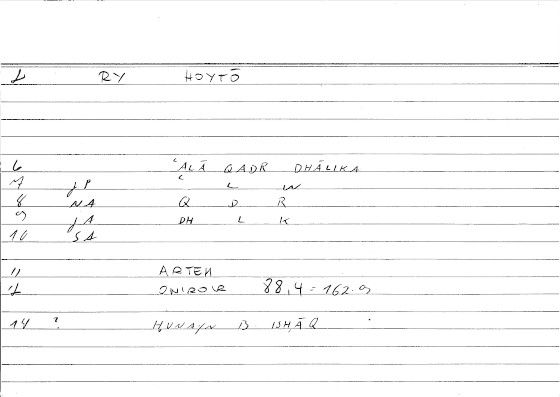 1 RY HOYTŌ
6 ʿALĀ QADR DHĀLIKA
7 JP ʿ L W
8 NA Q D R
9 JA DH L K
10 SA
11 ARTEM
12 ONIROCR 88,4 = 162.9
14 ? ḤUNAYN B ISḤĀQ